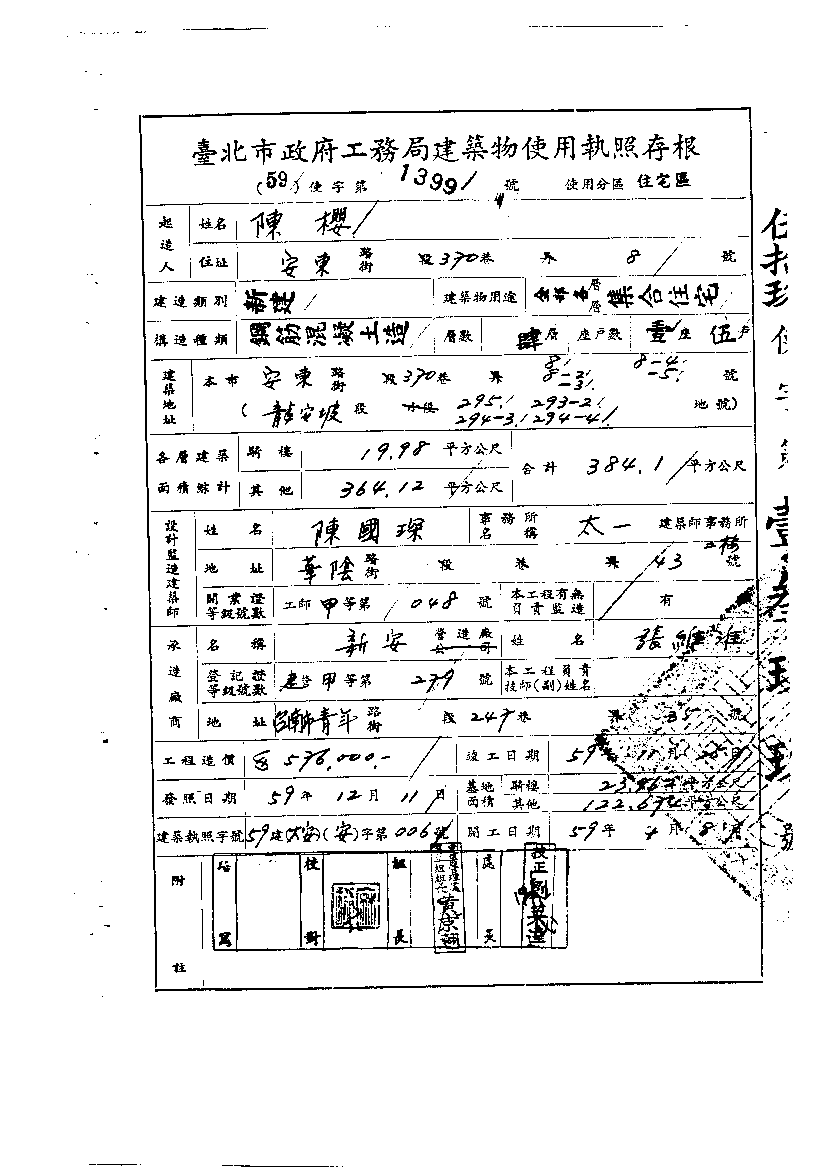 臺北市政府工務局建築物使用執照存根
(59)使字第 1399 號 使用分區 住宅區
起造人 姓名 陳櫻
住址 安東 路街 段 370 巷 弄 8 號
建造類別 新建 建築物用途 全部各層 集合住宅
構造種類 鋼筋混凝土造 層數 肆層 座戶數 壹座 伍戶
建築地址 本市 安東 路街 段 370 巷 弄 8 8-2 8-3 8-4 8-5 號
(龍安坡 段 小段 295 293-2 294-3 294-4 地號)
各層建築面積綜計 騎樓 19.98 平方公尺 合計 384.1 平方公尺
其他 364.12 平方公尺
設計監造建築師 姓名 陳國琛 事務所名稱 太一 建築師事務所
地址 華陰 路街 段 巷 弄 43 號 二樓
開業證等級號數 工師 甲等第 048 號 本工程有無負責監造 有
承造廠商 名稱 新安 營造廠公司 姓名 張維
登記證等級號數 甲等第 279 號 本工程負責技師(副)姓名
地址 青年 路街 段 247 巷 弄 35 號
工程造價 576,000.- 竣工日期 59年 11月 日
發照日期 59年 12月 11日 基地面積 騎樓 平方公尺
其他 平方公尺
建築執照字號 59建(大安)(安)字第006號 開工日期 59年 4月 8日
附註 繕寫 校對 組長 處長
伍拾玖使字第壹 號